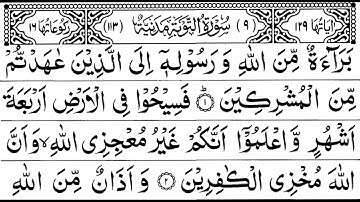 اٰیاتها ۱۲۹ (۹) سُوْرَةُ التَّوْبَةِ مَدَنِیَّةٌ (۱۱۳) رکوعاتها ۱۶
بَرَآءَةٌ مِّنَ اللّٰهِ وَرَسُوْلِهٖۤ اِلَى الَّذِیْنَ عٰهَدْتُّمْ
مِّنَ الْمُشْرِكِیْنَ ۱ فَسِیْحُوْا فِی الْاَرْضِ اَرْبَعَةَ
اَشْهُرٍ وَّاعْلَمُوْۤا اَنَّكُمْ غَیْرُ مُعْجِزِی اللّٰهِ ۙ وَاَنَّ
اللّٰهَ مُخْزِی الْكٰفِرِیْنَ ۲ وَاَذَانٌ مِّنَ اللّٰهِ